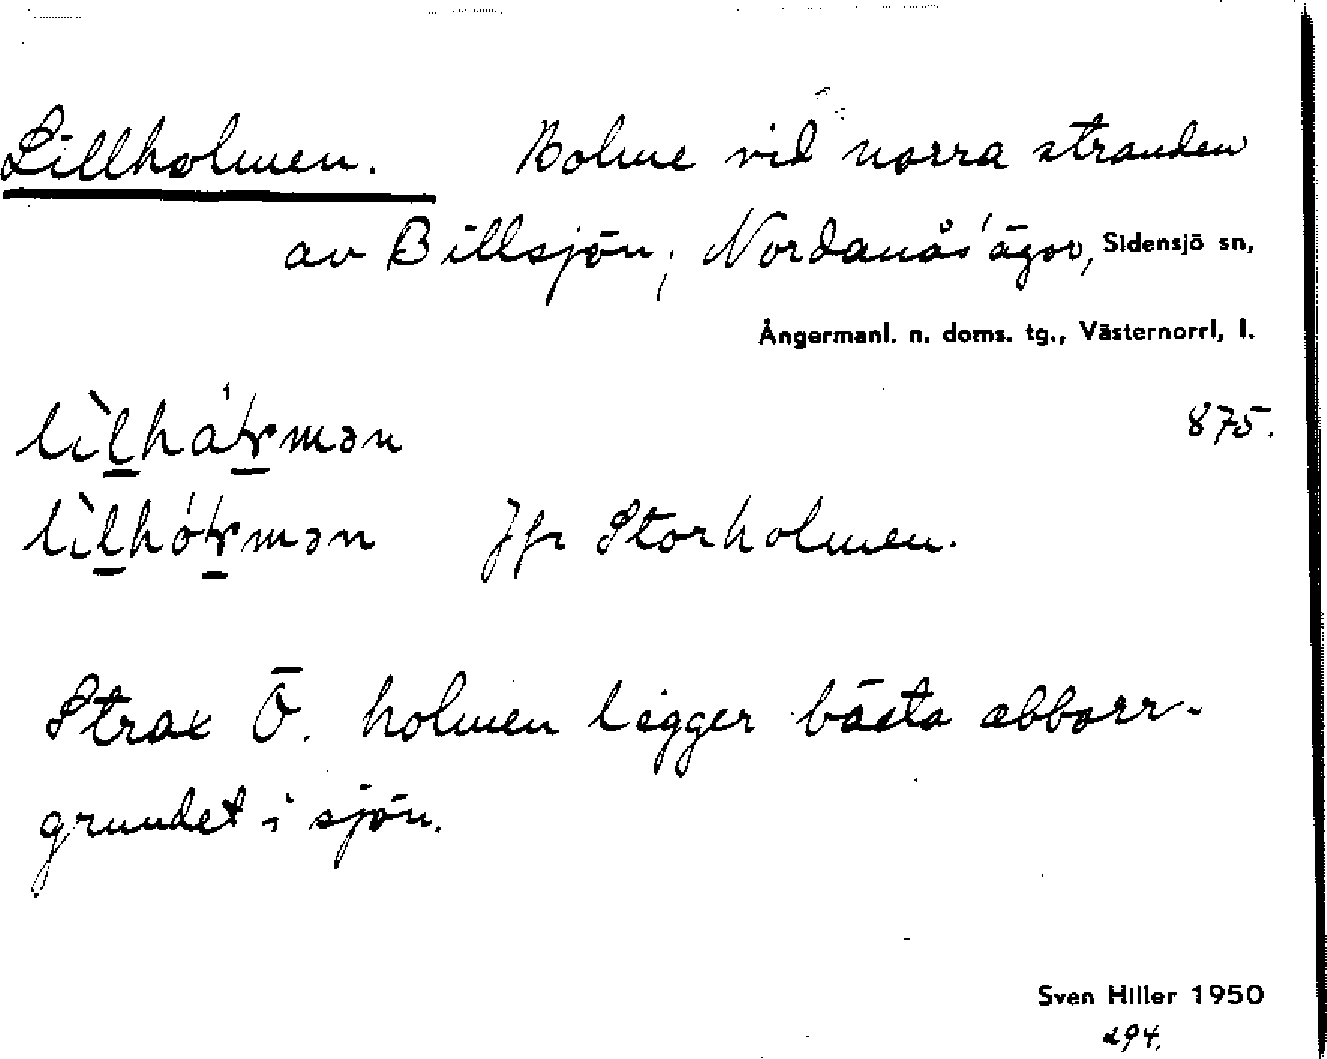 Lillholmen. Holme vid norra stranden
av Billsjön; Nordanås' ägor, Sidensjö sn,
Ångermanl. n. doms. tg., Västernorrl, l.
875.
Jfr Storholmen.
Strax Ö. holmen ligger bästa abborr-
grundet i sjön.
Sven Hiller 1950
294.